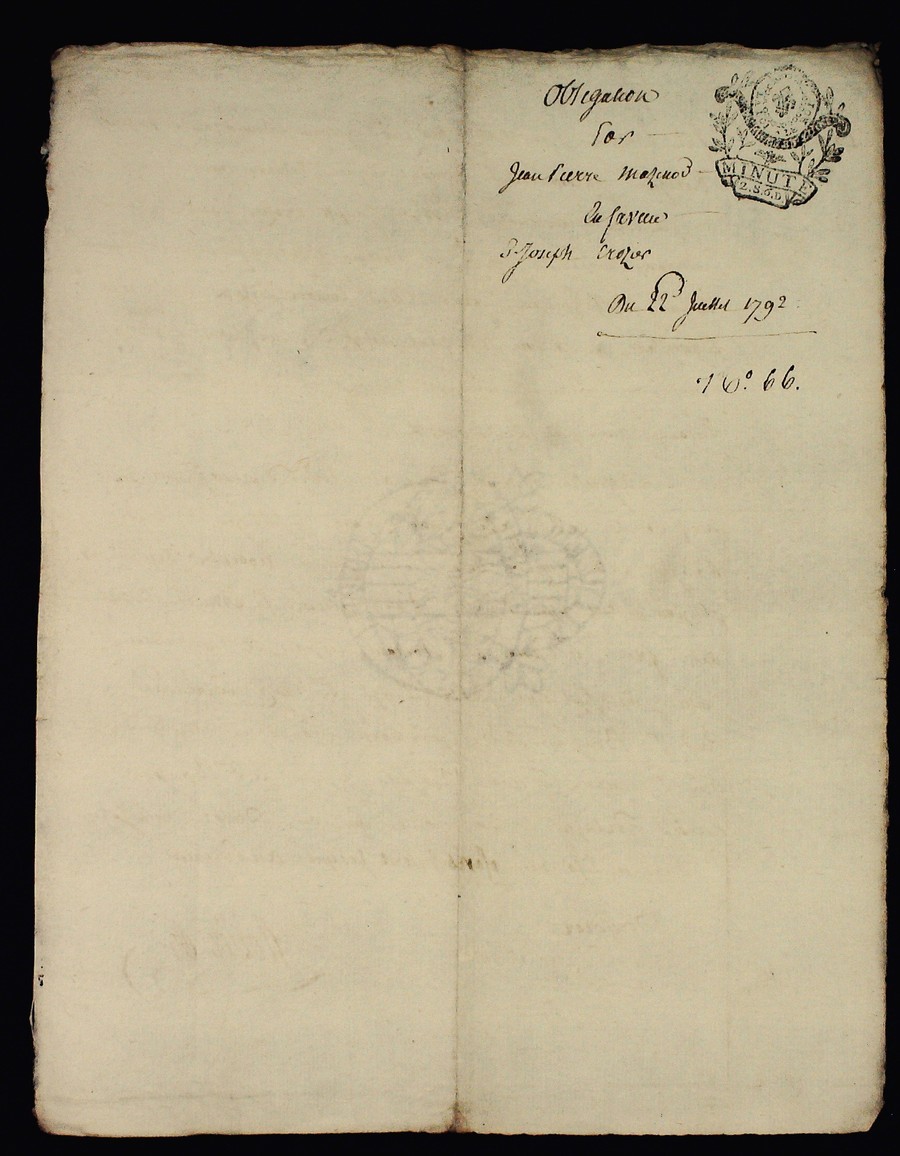 Obligation
Par
Jean Pierre Mazenod
En faveur
D. Joseph Crozier
Du 22 Juillet 1792
N°. 66.
MINUTE
2.S.6.D